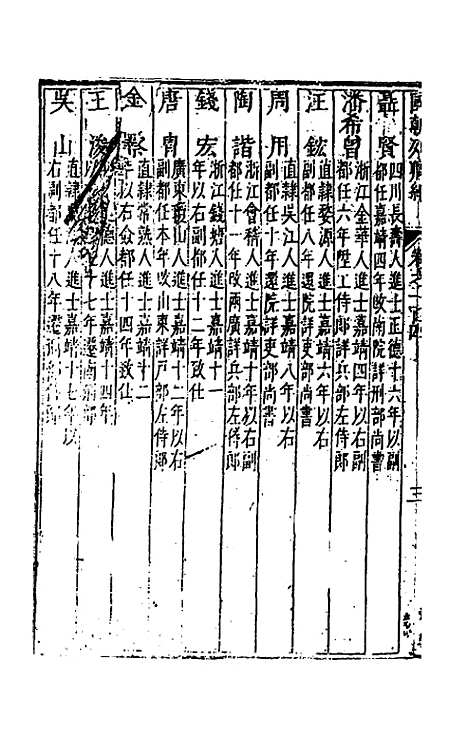 國朝列卿紀
聶賢 四川長壽人進士正德十六年以副
都任嘉靖四年改南院詳刑部尚書
潘希曾 浙江金華人進士嘉靖四年以右副
都任六年陞工侍郎詳兵部左侍郎
汪鋐 直隸婺源人進士嘉靖六年以右
副都任八年還院詳吏部尚書
周用 直隸吳江人進士嘉靖八年以右
副都任十年還院詳吏部尚書
陶諧 浙江會稽人進士嘉靖十年以右副
都任十一年改兩廣詳兵部左侍郎
錢宏 浙江錢塘人進士嘉靖十一
年以右副都任十二年致仕
唐冑 廣東瓊山人進士嘉靖十二年以右
副都任本年改山東詳戶部左侍郎
金 直隸常熟人進士嘉靖十二
年以右僉都任十四年致仕
王浚 人進士嘉靖十四年
以 十七年遷南
吳山 直隸 人進士嘉靖十七年以
右副都任十八年遷
三